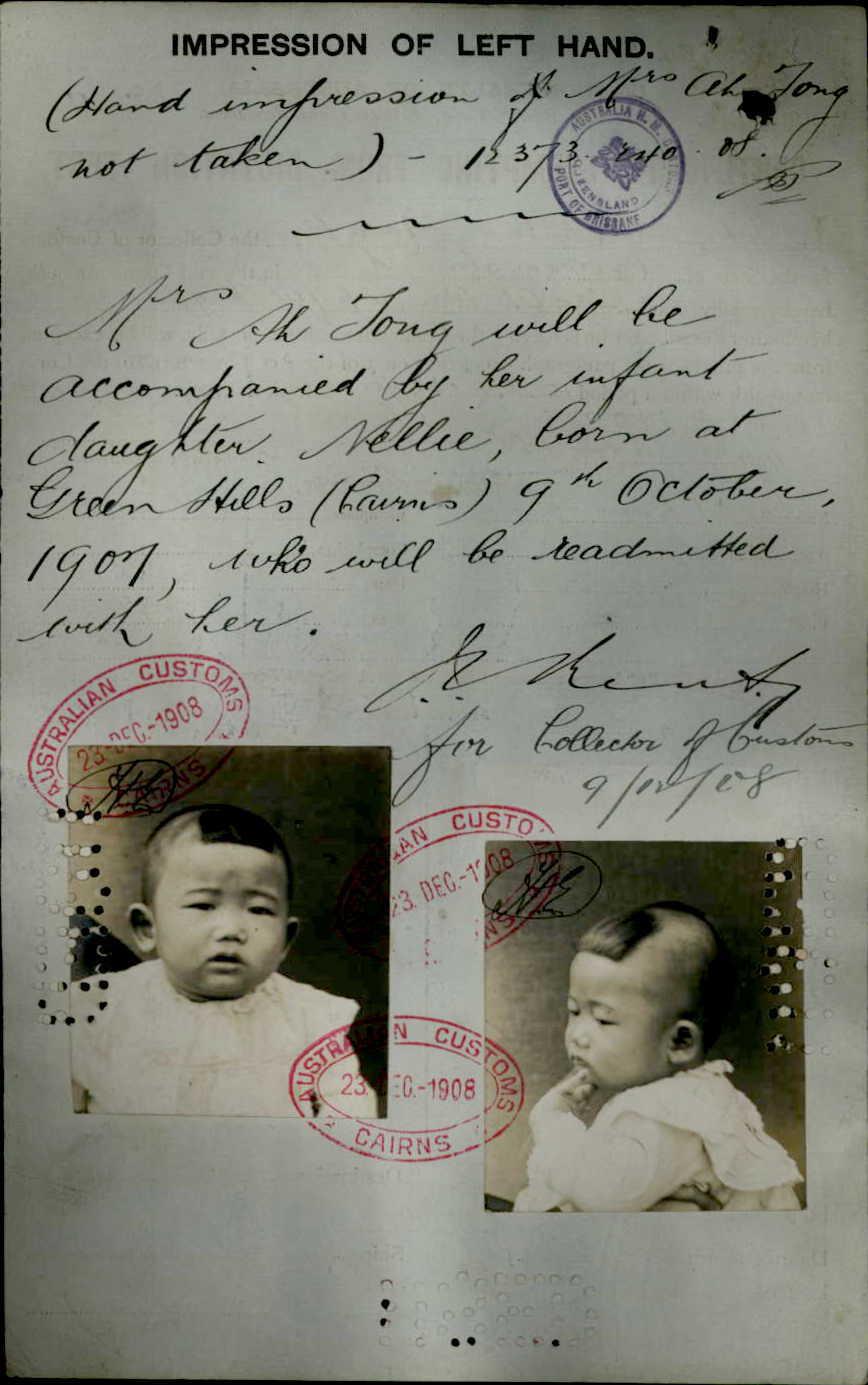 IMPRESSION OF LEFT HAND.
(Hand impression of Mrs Ah Tong
not taken.) - 12373. 240. 08.
AUSTRALIA H. M.
QUEENSLAND
PORT OF BRISBANE
Mrs Ah Tong will be
accompanied by her infant
daughter. Nellie, born at
Green Hills (Cairns) 9th October,
1907, who will be readmitted
with her.
for Collector of Customs
9/12/08
AUSTRALIAN CUSTOMS
23 DEC.-1908
CAIRNS
AN CUSTO
23. DEC.-1908
NS
AUSTRALIAN CUSTOMS
23 DEC.-1908
CAIRNS